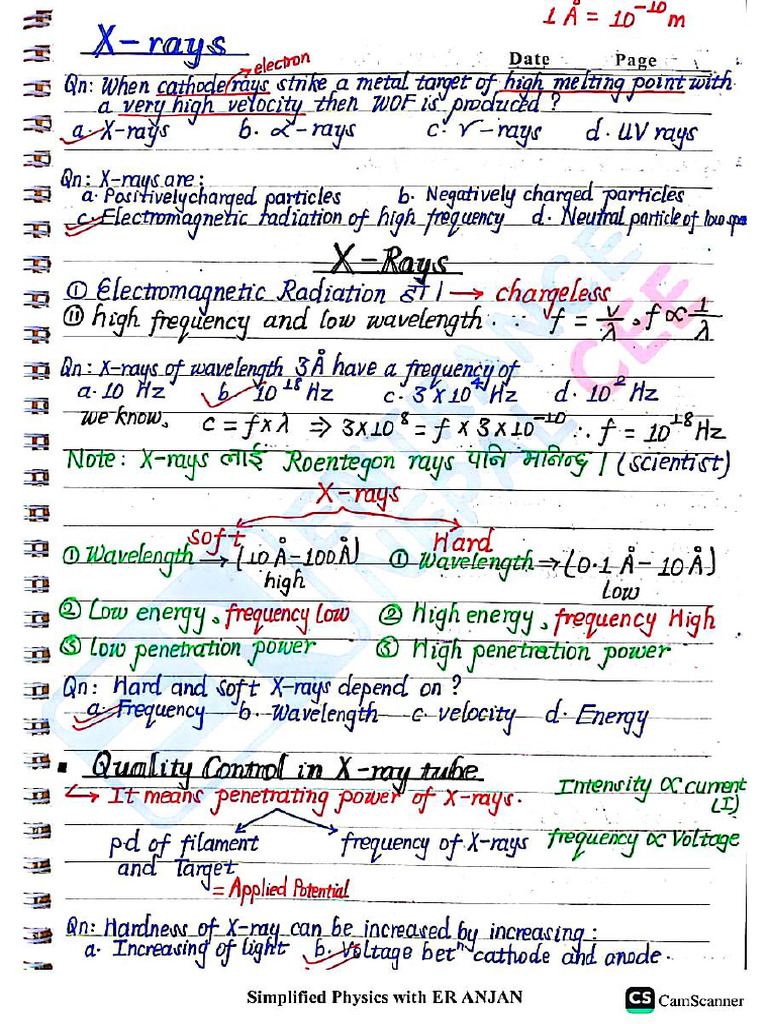 1 Å = 10⁻¹⁰ m
X-rays
Date Page
electron
Qn: When cathode rays strike a metal target of high melting point with
a very high velocity then WOF is produced ?
a. X-rays b. α-rays c. γ-rays d. UV rays
Qn: X-rays are:
a. Positively charged particles b. Negatively charged particles
c. Electromagnetic radiation of high frequency d. Neutral particle of low spe
X-Rays
① Electromagnetic Radiation हो। → chargeless
⑪ high frequency and low wavelength ∴ f = v/λ, f ∝ 1/λ
Qn: X-rays of wavelength 3Å have a frequency of
a. 10 Hz b. 10¹⁸ Hz c. 3 × 10⁴ Hz d. 10² Hz
we know, c = f × λ ⇒ 3×10⁸ = f × 3 × 10⁻¹⁰ ∴ f = 10¹⁸ Hz
Note: X-rays लाई Roentegon rays पनि भनिन्छ। (scientist)
X-rays
soft Hard
① Wavelength → (10 Å-100Å) ① Wavelength → (0.1 Å - 10Å)
high low
② Low energy, frequency low ② High energy, frequency High
③ Low penetration power ③ High penetration power
Qn: Hard and soft X-rays depend on ?
a. Frequency b. Wavelength c. velocity d. Energy
▪ Quality Control in X-ray tube
↳ It means penetrating power of X-rays. Intensity ∝ current
(I)
p.d of filament frequency of X-rays frequency ∝ Voltage
and Target
= Applied Potential
Qn: Hardness of X-ray can be increased by increasing :
a. Increasing of light b. Voltage betⁿ cathode and anode.
ENTRANCE
NEPAL CEE
Simplified Physics with ER ANJAN
CS CamScanner